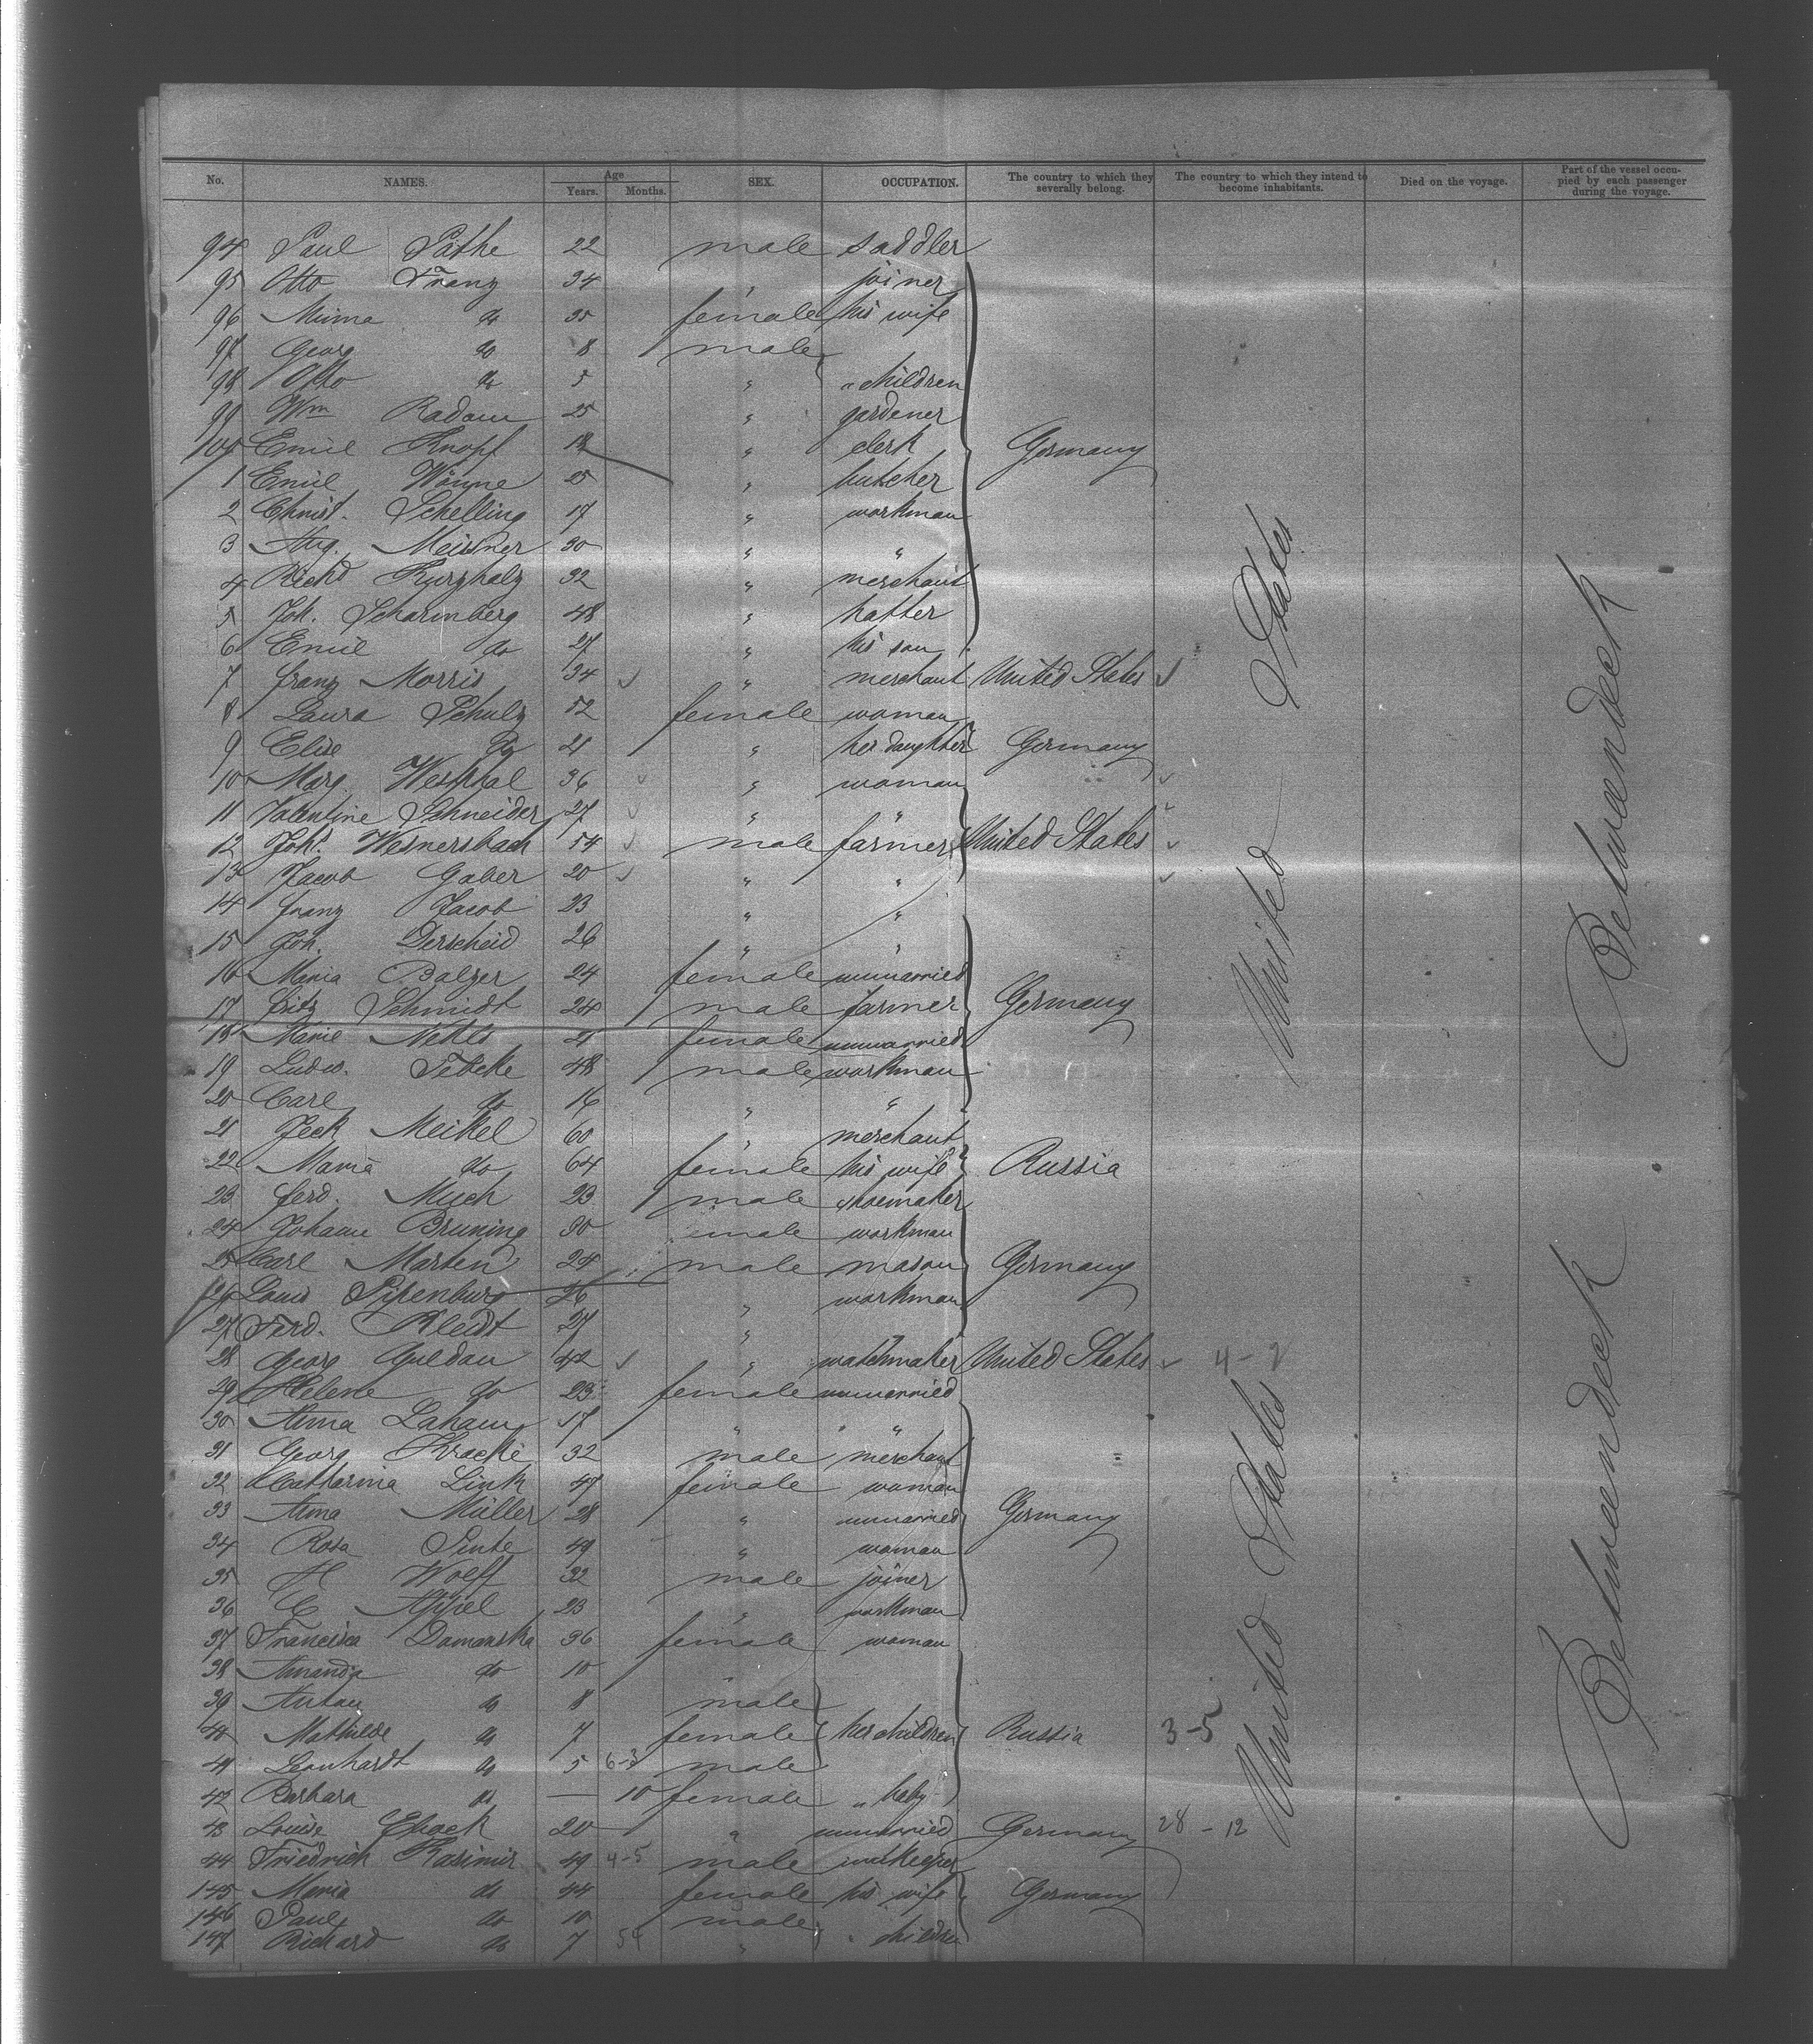 No. NAMES. Age Years. Months. SEX. OCCUPATION. The country to which they severally belong. The country to which they intend to become inhabitants. Died on the voyage. Part of the vessel occupied by each passenger during the voyage.
94 Paul Pathe 22 male saddler
95 Otto Franz 34 " joiner
96 Minna do 35 female his wife
97 Georg do 8 male
98 Otto do 5 " " children
99 Wm Radam 25 " gardener
100 Emil Knopf 18 " clerk Germany
1 Emil 25 " butcher
2 Christ. Schelling 17 " workman
3 Aug. Meissner 30 " "
4 Richd Kurzhalz 32 " merchant
5 Joh. Scharnberg 48 " hatter
6 Emil do 27 " his son
7 Franz Morris 34 " merchant United States
8 Laura Schulz 52 female woman
9 Elise do 21 " her daughter Germany
10 Marg. Westphal 36 " woman
11 Valentine Schneider 27 " "
12 Joh. Wesnersbach 54 male farmer United States
13 Jacob Gaber 20 " "
14 Franz Jacob 23 " "
15 Joh. Derscheid 26 " "
16 Maria Balzer 24 female unmarried
17 Fritz Schmidt 24 male farmer Germany
18 Marie 21 female unmarried
19 Ludw. Tebcke 48 male workman
20 Carl do 16 " "
21 Jeck Meikel 60 merchant
22 Maria do 64 female his wife Russia
23 Ferd. Much 23 male shoemaker
24 Johann Bruning 30 male workman
25 Carl Marten 24 male mason Germany
26 Louis Pipenburg 26 " workman
27 Ferd. 27 "
28 Georg Guldau 42 " watchmaker United States 4-2
29 Helene do 23 female unmarried
30 Anna 17 " "
31 Georg Kracke 32 male merchant
32 Catharina Link 47 female woman
33 Anna Müller 28 " unmarried Germany
34 Rosa 49 " woman
35 H Wolff 32 male joiner
36 C Appel 23 " workman
37 Francisca Damanska 36 female woman
38 Amanda do 10 "
39 Anton do 8 male
40 Mathilde do 7 female her children Russia 3-5
41 Leonhardt do 5 6-3 male
42 Barbara do — 10 female " baby
43 Louise 20 " unmarried Germany 28-12
44 Friedrich Kasimir 49 4-5 male innkeeper
145 Maria do 44 female his wife Germany
146 Paul do 10 male
147 Richard do 7 54 " " children
United States
United States
Betweendeck
Betweendeck